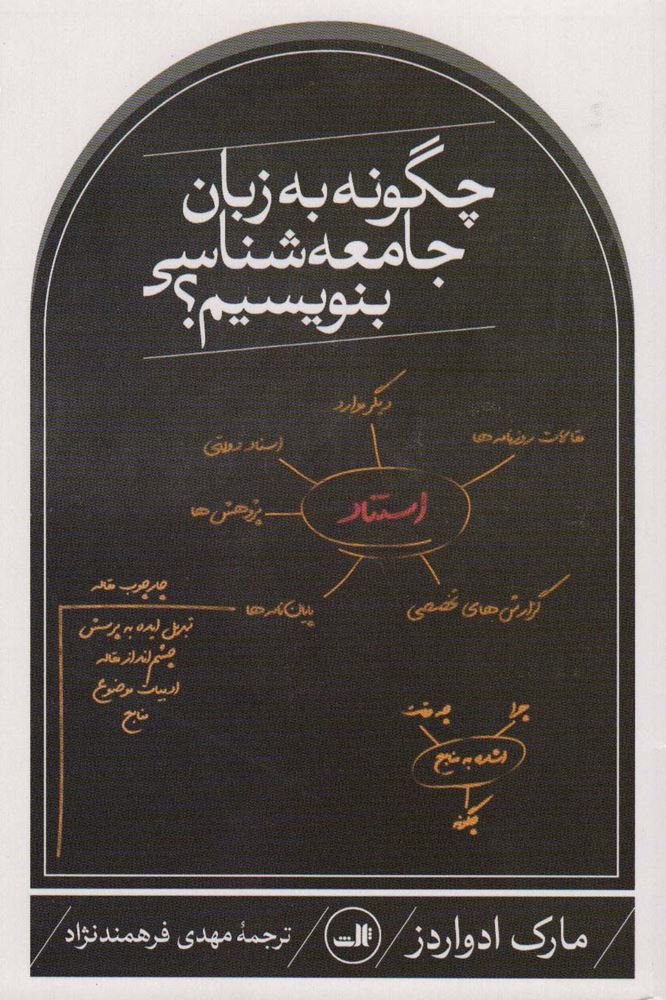 چگونه به زبان
جامعه‌شناسی
بنویسیم؟
دیگر موارد
مقالات روزنامه‌ها
اسناد دولتی
استناد
پژوهش‌ها
پایان‌نامه‌ها
گزارش‌های تخصصی
چارچوب مقاله
تبدیل ایده به پرسش
چشم‌انداز مقاله
ادبیات موضوع
منابع
چرا
چه وقت
اشاره به منابع
چگونه
مارک ادواردز
ثالث
ترجمهٔ مهدی فرهمندنژاد